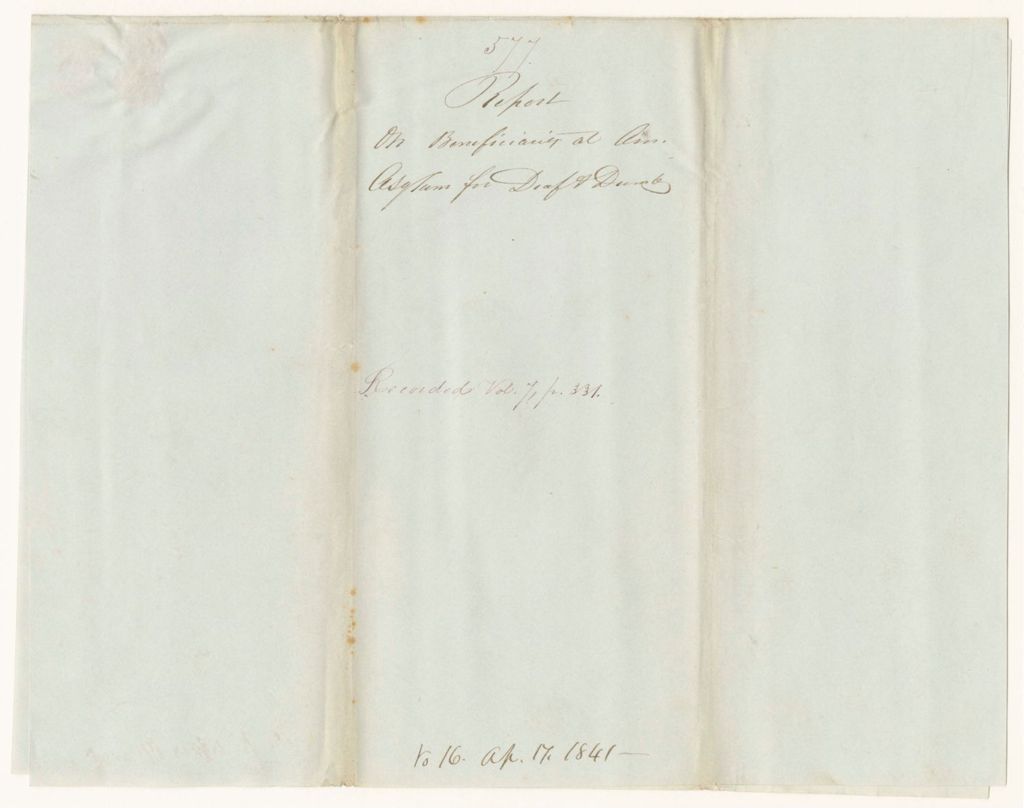 577
Report
On Beneficiaries at Am.
Asylum for Deaf & Dumb
Recorded Vol. 7, p. 331.
No 16. Ap. 17. 1841 —